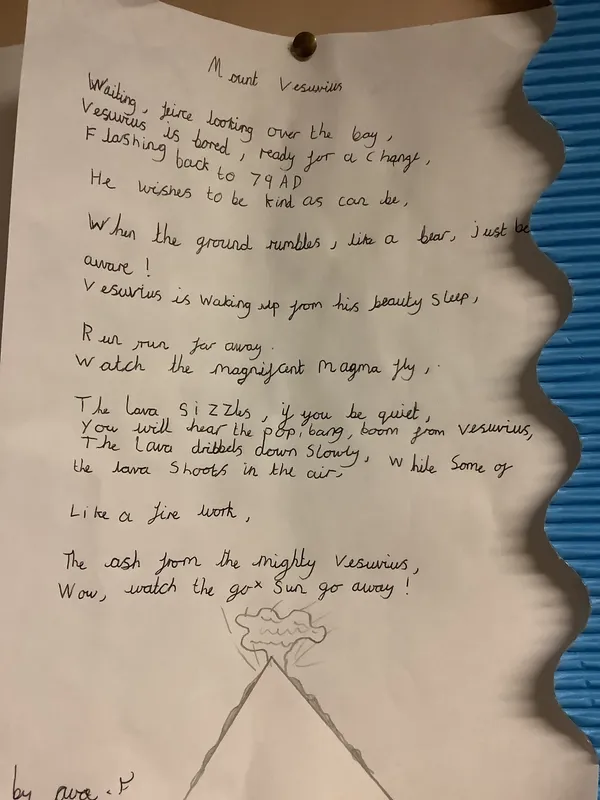 Mount Vesuvius
Waiting, feirce looking over the bay,
Vesuvius is bored, ready for a change,
Flashing back to 79 AD
He wishes to be kind as can be,
When the ground rumbles, like a bear, just be
aware!
Vesuvius is waking up from his beauty sleep,
Run run far away.
Watch the magnificant magma fly,.
The lava sizzles, if you be quiet,
You will hear the pop, bang, boom from Vesuvius,
The lava dribbels down slowly, while some of
the lava shoots in the air,
Like a fire work,
The ash from the mighty Vesuvius,
Wow, watch the go sun go away!
by ava.F